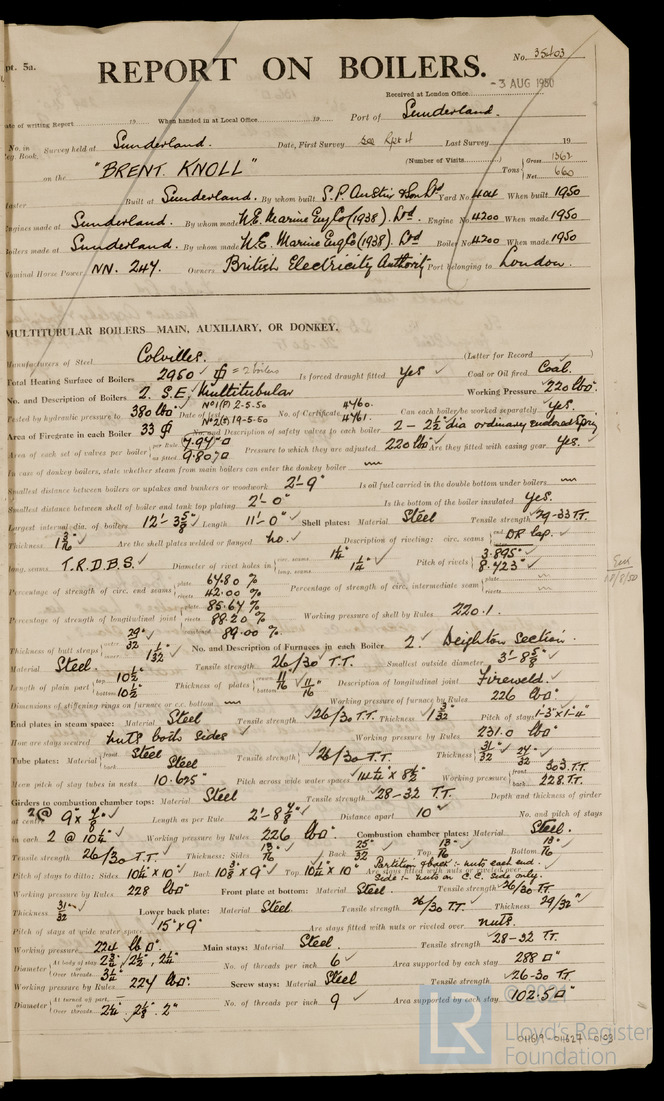 pt. 5a.
No. 35403
REPORT ON BOILERS.
Received at London Office -3 AUG 1950
ate of writing Report 19 When handed in at Local Office 19 Port of Sunderland.
No. in Survey held at Sunderland. Date, First Survey See Rpt 4 Last Survey 19
eg. Book. (Number of Visits) Gross 1362
on the "BRENT KNOLL" Tons Net 660
Master Built at Sunderland. By whom built S.P. Austin & Son Ltd Yard No. 404 When built 1950
Engines made at Sunderland. By whom made N.E. Marine Eng Co (1938). Ltd Engine No. 4200 When made 1950
Boilers made at Sunderland. By whom made N.E. Marine Eng Co (1938). Ltd Boiler No. 4200 When made 1950
Nominal Horse Power NN. 247. Owners British Electricity Authority Port belonging to London.
MULTITUBULAR BOILERS MAIN, AUXILIARY, OR DONKEY.
Manufacturers of Steel Colvilles. (Letter for Record )
Total Heating Surface of Boilers 2950 = 2 boilers Is forced draught fitted Yes Coal or Oil fired Coal.
No. and Description of Boilers 2. S.E. Multitubular Working Pressure 220 lbs
Tested by hydraulic pressure to 380 lbs Date of test No1(P) 2-5-50 No2(S) 19-5-50 No. of Certificate 4760. 4761. Can each boiler be worked separately Yes.
Area of Firegrate in each Boiler 33 No. and Description of safety valves to each boiler 2 - 2½" dia ordinary enclosed Spg
Area of each set of valves per boiler per Rule 7.947 as fitted 9.8070 Pressure to which they are adjusted 220 lbs Are they fitted with easing gear Yes.
In case of donkey boilers, state whether steam from main boilers can enter the donkey boiler
Smallest distance between boilers or uptakes and bunkers or woodwork 2'-9" Is oil fuel carried in the double bottom under boilers
Smallest distance between shell of boiler and tank top plating 2'-0" Is the bottom of the boiler insulated Yes.
Largest internal dia. of boilers 12'-3 5/8" Length 11'-0" Shell plates: Material Steel Tensile strength 29-33 T.T.
Thickness 1 3/16" Are the shell plates welded or flanged No. Description of riveting: circ. seams end DR lap. inter.
long. seams T.R.D.B.S. Diameter of rivet holes in circ. seams 1¼" long. seams 1¼" Pitch of rivets 3.895" 8.423"
Percentage of strength of circ. end seams plate 64.80 % rivets 42.00 % Percentage of strength of circ. intermediate seam plate rivets
Percentage of strength of longitudinal joint plate 85.67 % rivets 88.20 % combined 89.00 % Working pressure of shell by Rules 220.1.
Thickness of butt straps outer 29/32" inner 1 1/32" No. and Description of Furnaces in each Boiler 2. Deighton Section.
Material Steel. Tensile strength 26/30 T.T. Smallest outside diameter 3'-8 5/8"
Length of plain part top 10½" bottom 10½" Thickness of plates crown 11/16" bottom 11/16" Description of longitudinal joint Fireweld.
Dimensions of stiffening rings on furnace or c.c. bottom Working pressure of furnace by Rules 226 lbs
End plates in steam space: Material Steel Tensile strength 26/30 T.T. Thickness 1 3/32" Pitch of stays 1'-3" x 1'-4"
How are stays secured Nuts both sides Working pressure by Rules 231.0 lbs
Tube plates: Material front Steel back Steel Tensile strength 26/30 T.T. Thickness 31/32" 24/32"
Mean pitch of stay tubes in nests 10.625" Pitch across wide water spaces 14½" x 8½" Working pressure front 303 T.T. back 228 T.T.
Girders to combustion chamber tops: Material Steel Tensile strength 28-32 T.T. Depth and thickness of girder
at centre 2 @ 9" x Length as per Rule 2'-8 Distance apart 10" No. and pitch of stays
in each 2 @ 10½" Working pressure by Rules 226 lbs Combustion chamber plates: Material Steel.
Tensile strength 26/30 T.T. Thickness: Sides 13/16" Back 25/32" Top 13/16" Bottom 13/16"
Pitch of stays to ditto: Sides 10½" x 10" Back 10 3/8" x 9" Top 10½" x 10" Are stays fitted with nuts or riveted over Partition & back :- nuts each end. Side :- nuts on C.C. side only.
Working pressure by Rules 228 lbs Front plate at bottom: Material Steel. Tensile strength 26/30 T.T.
Thickness 31/32" Lower back plate: Material Steel Tensile strength 26/30 T.T. Thickness 29/32"
Pitch of stays at wide water space 15" x 9" Are stays fitted with nuts or riveted over nuts.
Working pressure 224 lbs Main stays: Material Steel. Tensile strength 28-32 T.T.
Diameter At body of stay 2¾", 2½", 2¼" Over threads 3¼" No. of threads per inch 6 Area supported by each stay 288
Working pressure by Rules 227 lbs. Screw stays: Material Steel Tensile strength 26-30 T.T.
Diameter At turned off part Over threads 2¼", 2⅛", 2" No. of threads per inch 9 Area supported by each stay 102.5
© 2021
LR
Lloyd's Register
Foundation
011619-011627-0103